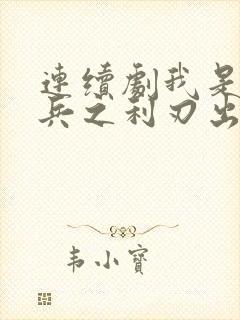 連續劇我是
兵之利刃出
韦小寶